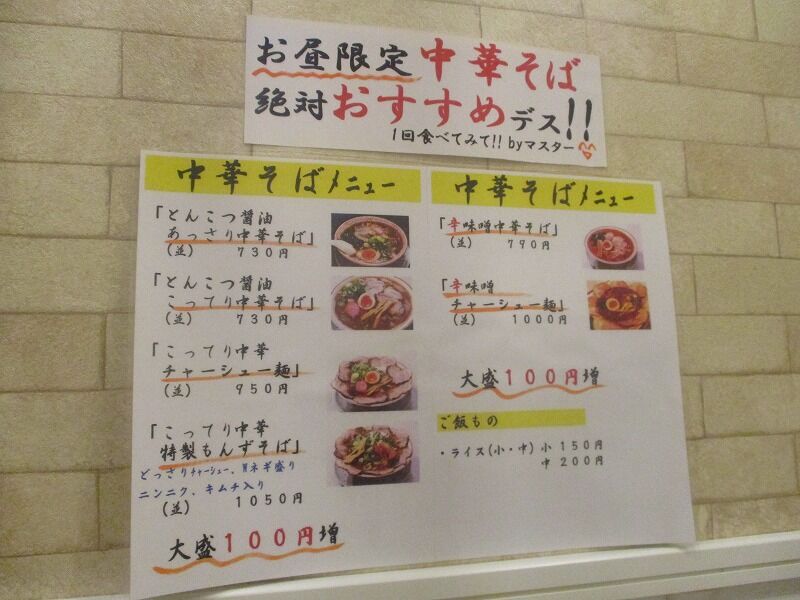 お昼限定中華そば
絶対おすすめデス!!
1回食べてみて!! byマスター
中華そばメニュー
「とんこつ醤油
あっさり中華そば」
(並) 730円
「とんこつ醤油
こってり中華そば」
(並) 730円
「こってり中華
チャーシュー麺」
(並) 950円
「こってり中華
特製もんずそば」
どっさりチャーシュー、Wネギ盛り
ニンニク、キムチ入り
(並) 1050円
大盛100円増
中華そばメニュー
「辛味噌中華そば」
(並) 790円
「辛味噌
チャーシュー麺」
(並) 1000円
大盛100円増
ご飯もの
・ライス(小・中) 小 150円
中 200円